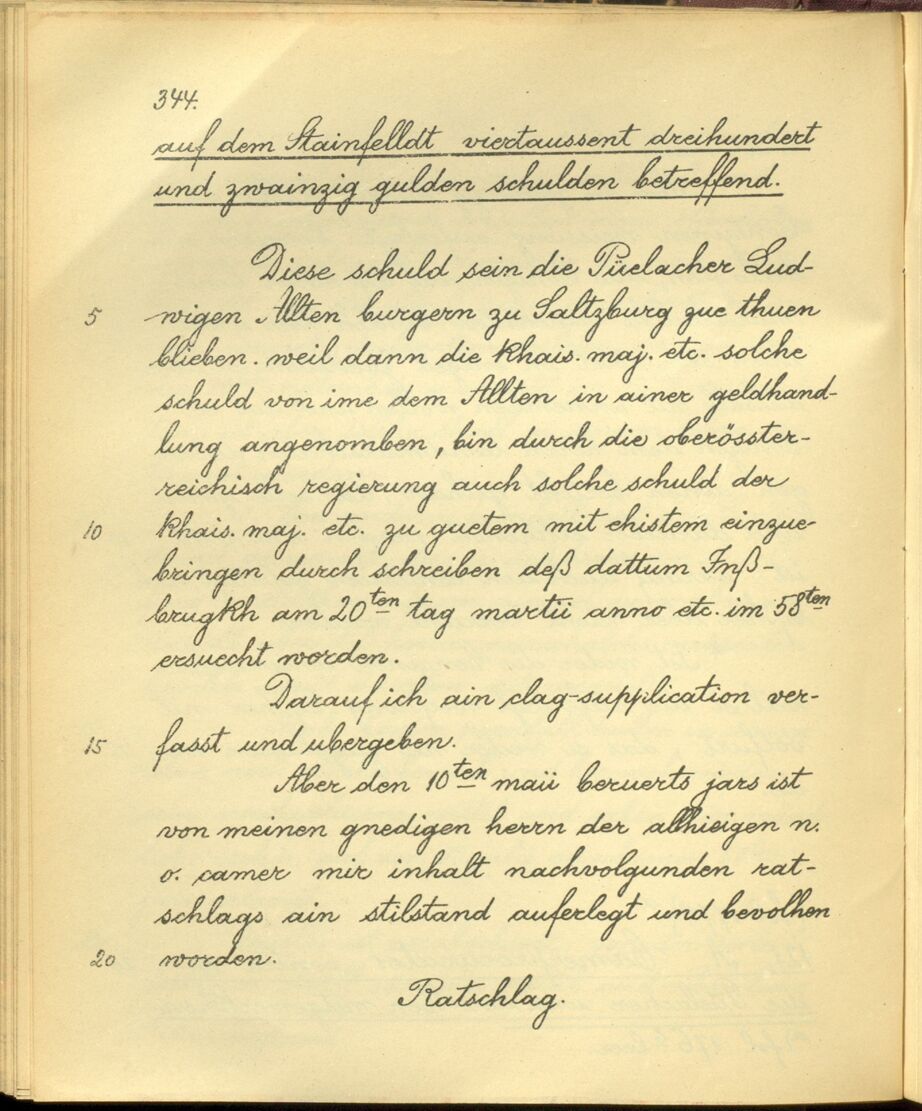 344.
auf dem Stainfelldt viertaussent dreihundert
und zwainzig gulden schulden betreffend.
Diese schuld sein die Püelacher Lud-
5 wigen Allten burgern zu Saltzburg zue thuen
blieben. weil dann die khais. maj. etc. solche
schuld von ime dem Allten in ainer geldhand-
lung angenomben, bin durch die oberösster-
reichisch regierung auch solche schuld der
10 khais. maj. etc. zu guetem mit ehistem einzue-
bringen durch schreiben deß dattum Inß-
brugkh am 20ten tag martii anno etc. im 58ten
ersuecht worden.
Darauf ich ain clag-supplication ver-
15 fasst und ubergeben.
Aber den 10ten maii beruerts jars ist
von meinen gnedigen herrn der allhieigen n.
o. camer mir inhalt nachvolgunden rat-
schlags ain stilstand auferlegt und bevolhen
20 worden.
Ratschlag.